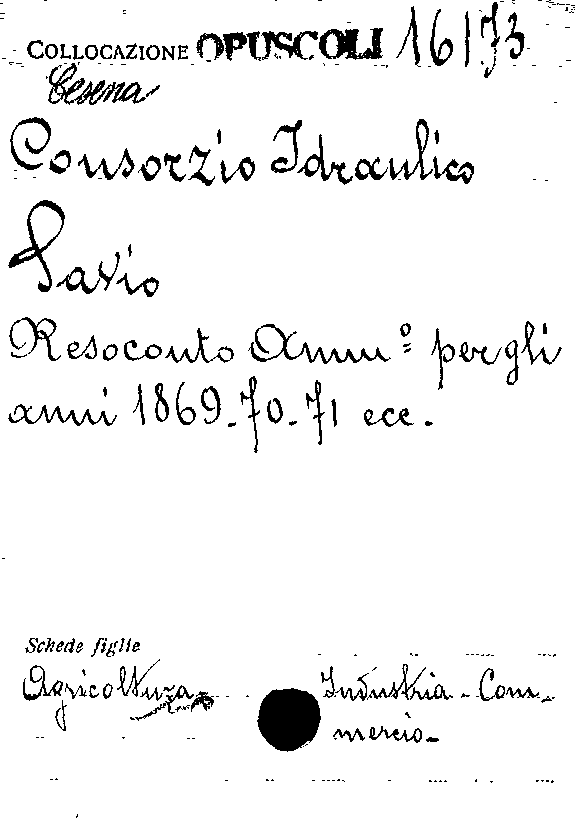 COLLOCAZIONE OPUSCOLI 16173
Cesena
Consorzio Idraulico
Savio
Resoconto Amm.º per gli
anni 1869-70-71 ecc.
Schede figlie
Agricoltura Industria - Com-
mercio-